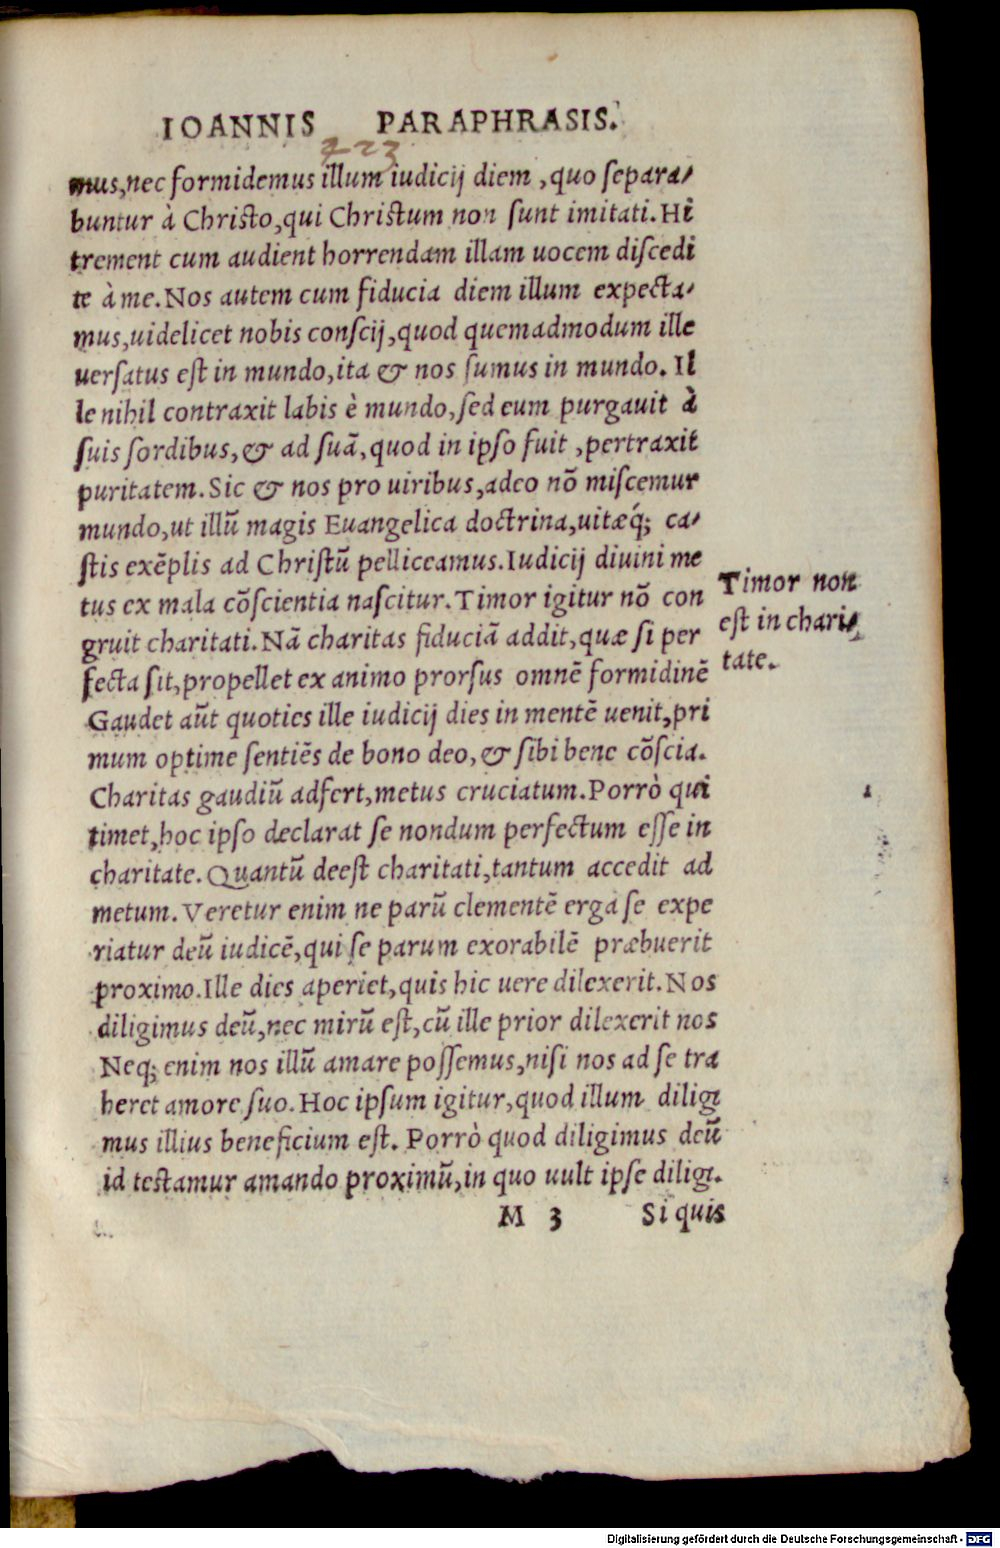 IOANNIS PARAPHRASIS.
423
mus, nec formidemus illum iudicij diem, quo separa-
buntur à Christo, qui Christum non sunt imitati. Hi
trement cum audient horrendam illam uocem discedi
te à me. Nos autem cum fiducia diem illum expecta-
mus, uidelicet nobis conscij, quod quemadmodum ille
uersatus est in mundo, ita & nos sumus in mundo. Il
le nihil contraxit labis è mundo, sed eum purgauit à
suis sordibus, & ad suã, quod in ipso fuit, pertraxit
puritatem. Sic & nos pro uiribus, adeo nõ miscemur
mundo, ut illũ magis Euangelica doctrina, uitæq́; ca-
stis exẽplis ad Christũ pelliceamus. Iudicij diuini me
tus ex mala cõscientia nascitur. Timor igitur nõ con
gruit charitati. Nã charitas fiduciã addit, quæ si per
fecta sit, propellet ex animo prorsus omnẽ formidinẽ
Gaudet aũt quoties ille iudicij dies in mentẽ uenit, pri
mum optime sentiẽs de bono deo, & sibi bene cõscia.
Charitas gaudiũ adfert, metus cruciatum. Porrò qui
timet, hoc ipso declarat se nondum perfectum esse in
charitate. Quantũ deest charitati, tantum accedit ad
metum. Veretur enim ne parũ clementẽ erga se expe
riatur deũ iudicẽ, qui se parum exorabilẽ præbuerit
proximo. Ille dies aperiet, quis hic uere dilexerit. Nos
diligimus deũ, nec mirũ est, cũ ille prior dilexerit nos
Neq; enim nos illũ amare possemus, nisi nos ad se tra
heret amore suo. Hoc ipsum igitur, quod illum diligi
mus illius beneficium est. Porrò quod diligimus deũ
id testamur amando proximũ, in quo uult ipse diligi.
M 3 Si quis
Timor non
est in chari-
tate.
Digitalisierung gefördert durch die Deutsche Forschungsgemeinschaft - DFG